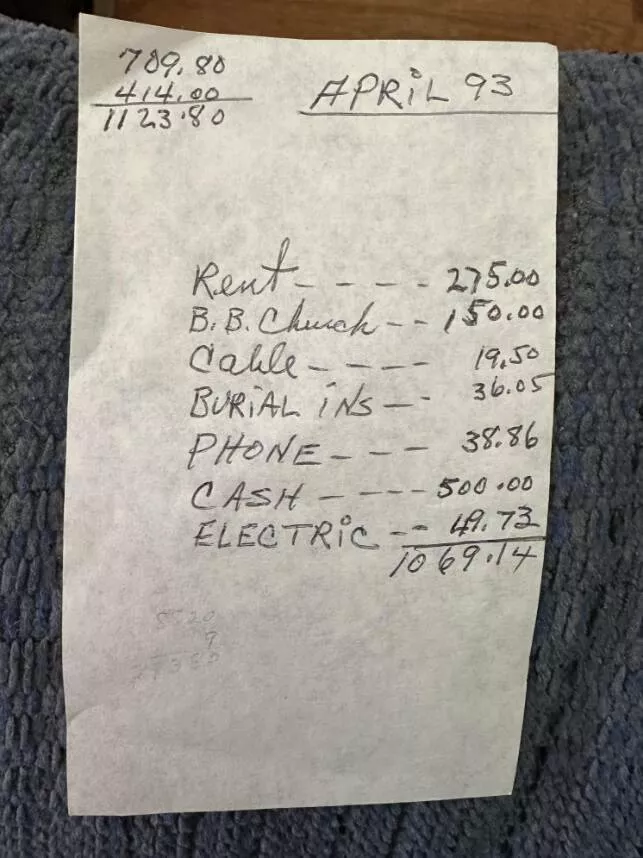 709.80
414.00
1123.80
APRiL 93
Rent - - - - - 275.00
B.B. Church - - 150.00
Cable - - - - 19.50
BURiAL iNS - - 36.05
PHONE - - - 38.86
CASH - - - - - 500.00
ELECTRiC - - 49.73
1069.14